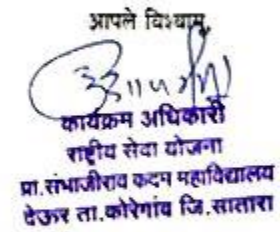 आपले विश्वासू
कार्यक्रम अधिकारी
राष्ट्रीय सेवा योजना
प्रा.संभाजीराव कदम महाविद्यालय
देऊर ता.कोरेगांव जि.सातारा